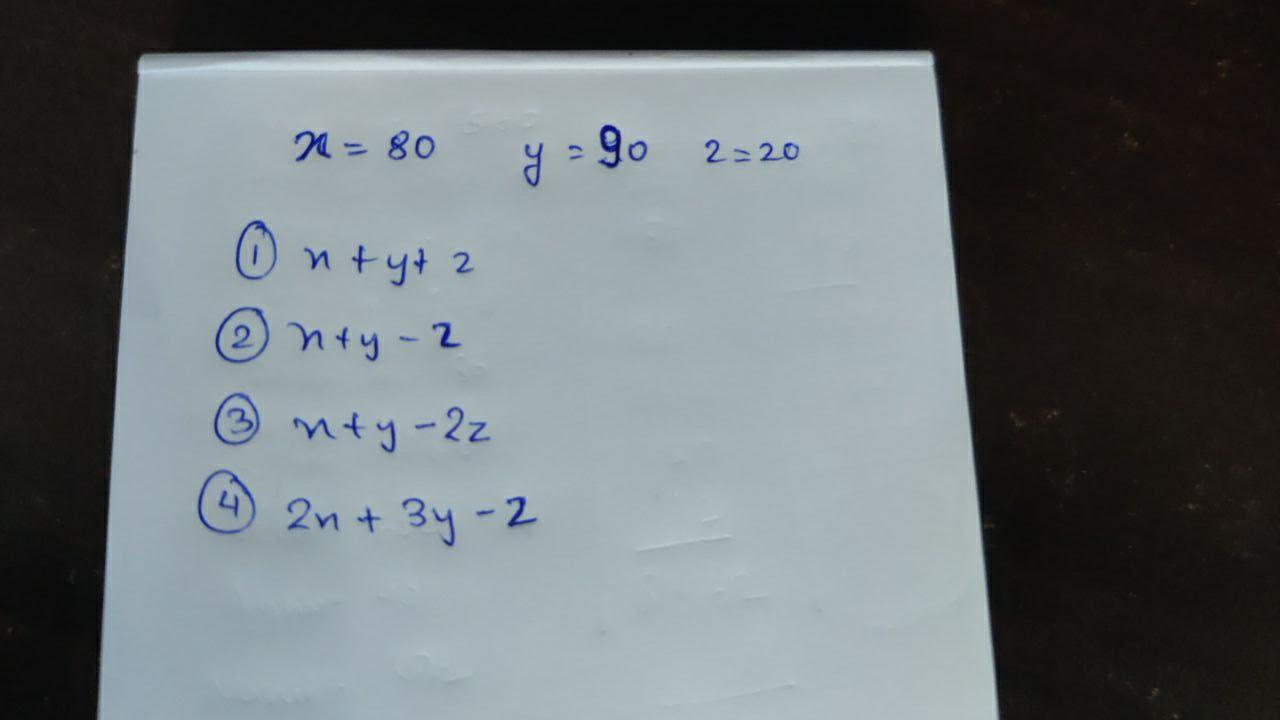 x = 80 y = 90 z = 20
① x + y + z
② x + y - z
③ x + y - 2z
④ 2x + 3y - z